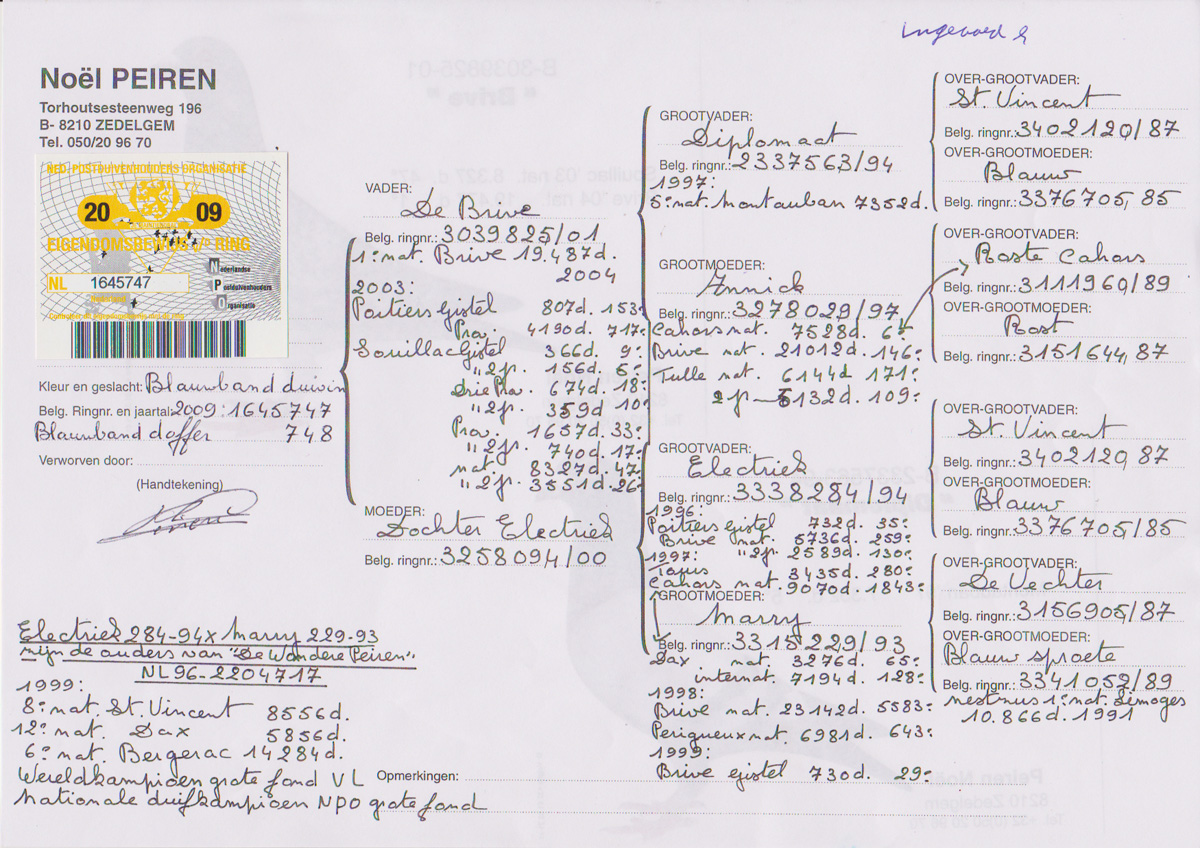 Ingevoerd
Noël PEIREN
Torhoutsesteenweg 196
B- 8210 ZEDELGEM
Tel. 050/20 96 70
NED. POSTDUIVENHOUDERS ORGANISATIE
20 09
EIGENDOMSBEWIJS v/e RING
NL 1645747
Nederlandse
Postduivenhouders
Organisatie
Kleur en geslacht: Blauwband duivin
Belg. Ringnr. en jaartal: 2009:1645747
Blauwband doffer 748
Verworven door:
(Handtekening)
VADER:
De Brive
Belg. ringnr.: 3039825/01
1e nat. Brive 19.487d.
2004
2003:
Poitiers Gistel 807d. 153e
Prov. 4190d. 717e
Souillac Gistel 366d. 9e
"2p. 156d. 5e
Drie Prov. 674d. 18e
"2p. 359d 10e
Prov. 1657d. 33e
"2p. 740d. 17e
nat. 8327d. 47e
"2p. 3551d. 26e
MOEDER:
Dochter Electriek
Belg. ringnr.: 3258094/00
GROOTVADER:
Diplomaat
Belg. ringnr.: 2337563/94
1997:
5e nat. Montauban 7352d.
GROOTMOEDER:
Annick
Belg. ringnr.: 3278029/97
Cahors nat. 7528d. 6e
Brive nat. 21012d. 146e
Tulle nat. 6144d 171e
2p 5132d. 109e
GROOTVADER:
Electriek
Belg. ringnr.: 3338284/94
1996:
Poitiers Gistel 732d. 35e
Brive nat. 5736d. 259e
1997: "2p. 2589d. 130e
3435d. 280e
Cahors nat. 9070d. 1843e
GROOTMOEDER:
Marry
Belg. ringnr.: 3315229/93
Dax nat. 3276d. 65e
internat. 7194d. 128e
1998:
Brive nat. 23142d. 5583e
Perigueux nat. 6981d. 643e
1999:
Brive Gistel 730d. 29e
OVER-GROOTVADER:
St. Vincent
Belg. ringnr.: 3402120/87
OVER-GROOTMOEDER:
Blauw
Belg. ringnr.: 3376705/85
OVER-GROOTVADER:
Roste Cahors
Belg. ringnr.: 3111960/89
OVER-GROOTMOEDER:
Rost
Belg. ringnr.: 3151644/87
OVER-GROOTVADER:
St. Vincent
Belg. ringnr.: 3402120/87
OVER-GROOTMOEDER:
Blauw
Belg. ringnr.: 3376705/85
OVER-GROOTVADER:
De Vechter
Belg. ringnr.: 3156905/87
OVER-GROOTMOEDER:
Blauw sproete
Belg. ringnr.: 3341052/89
nestzus 1e nat. Limoges
10.866d. 1991
Electriek 284-94 x Marry 229-93
mijn de ouders van "De Wondere Peiren"
NL 96-2204717
1999:
8e nat. St. Vincent 8556d.
12e nat. Dax 5856d.
6e nat. Bergerac 14284d.
Wereldkampioen grote fond VL
Nationale duifkampioen NPO grote fond
Opmerkingen: